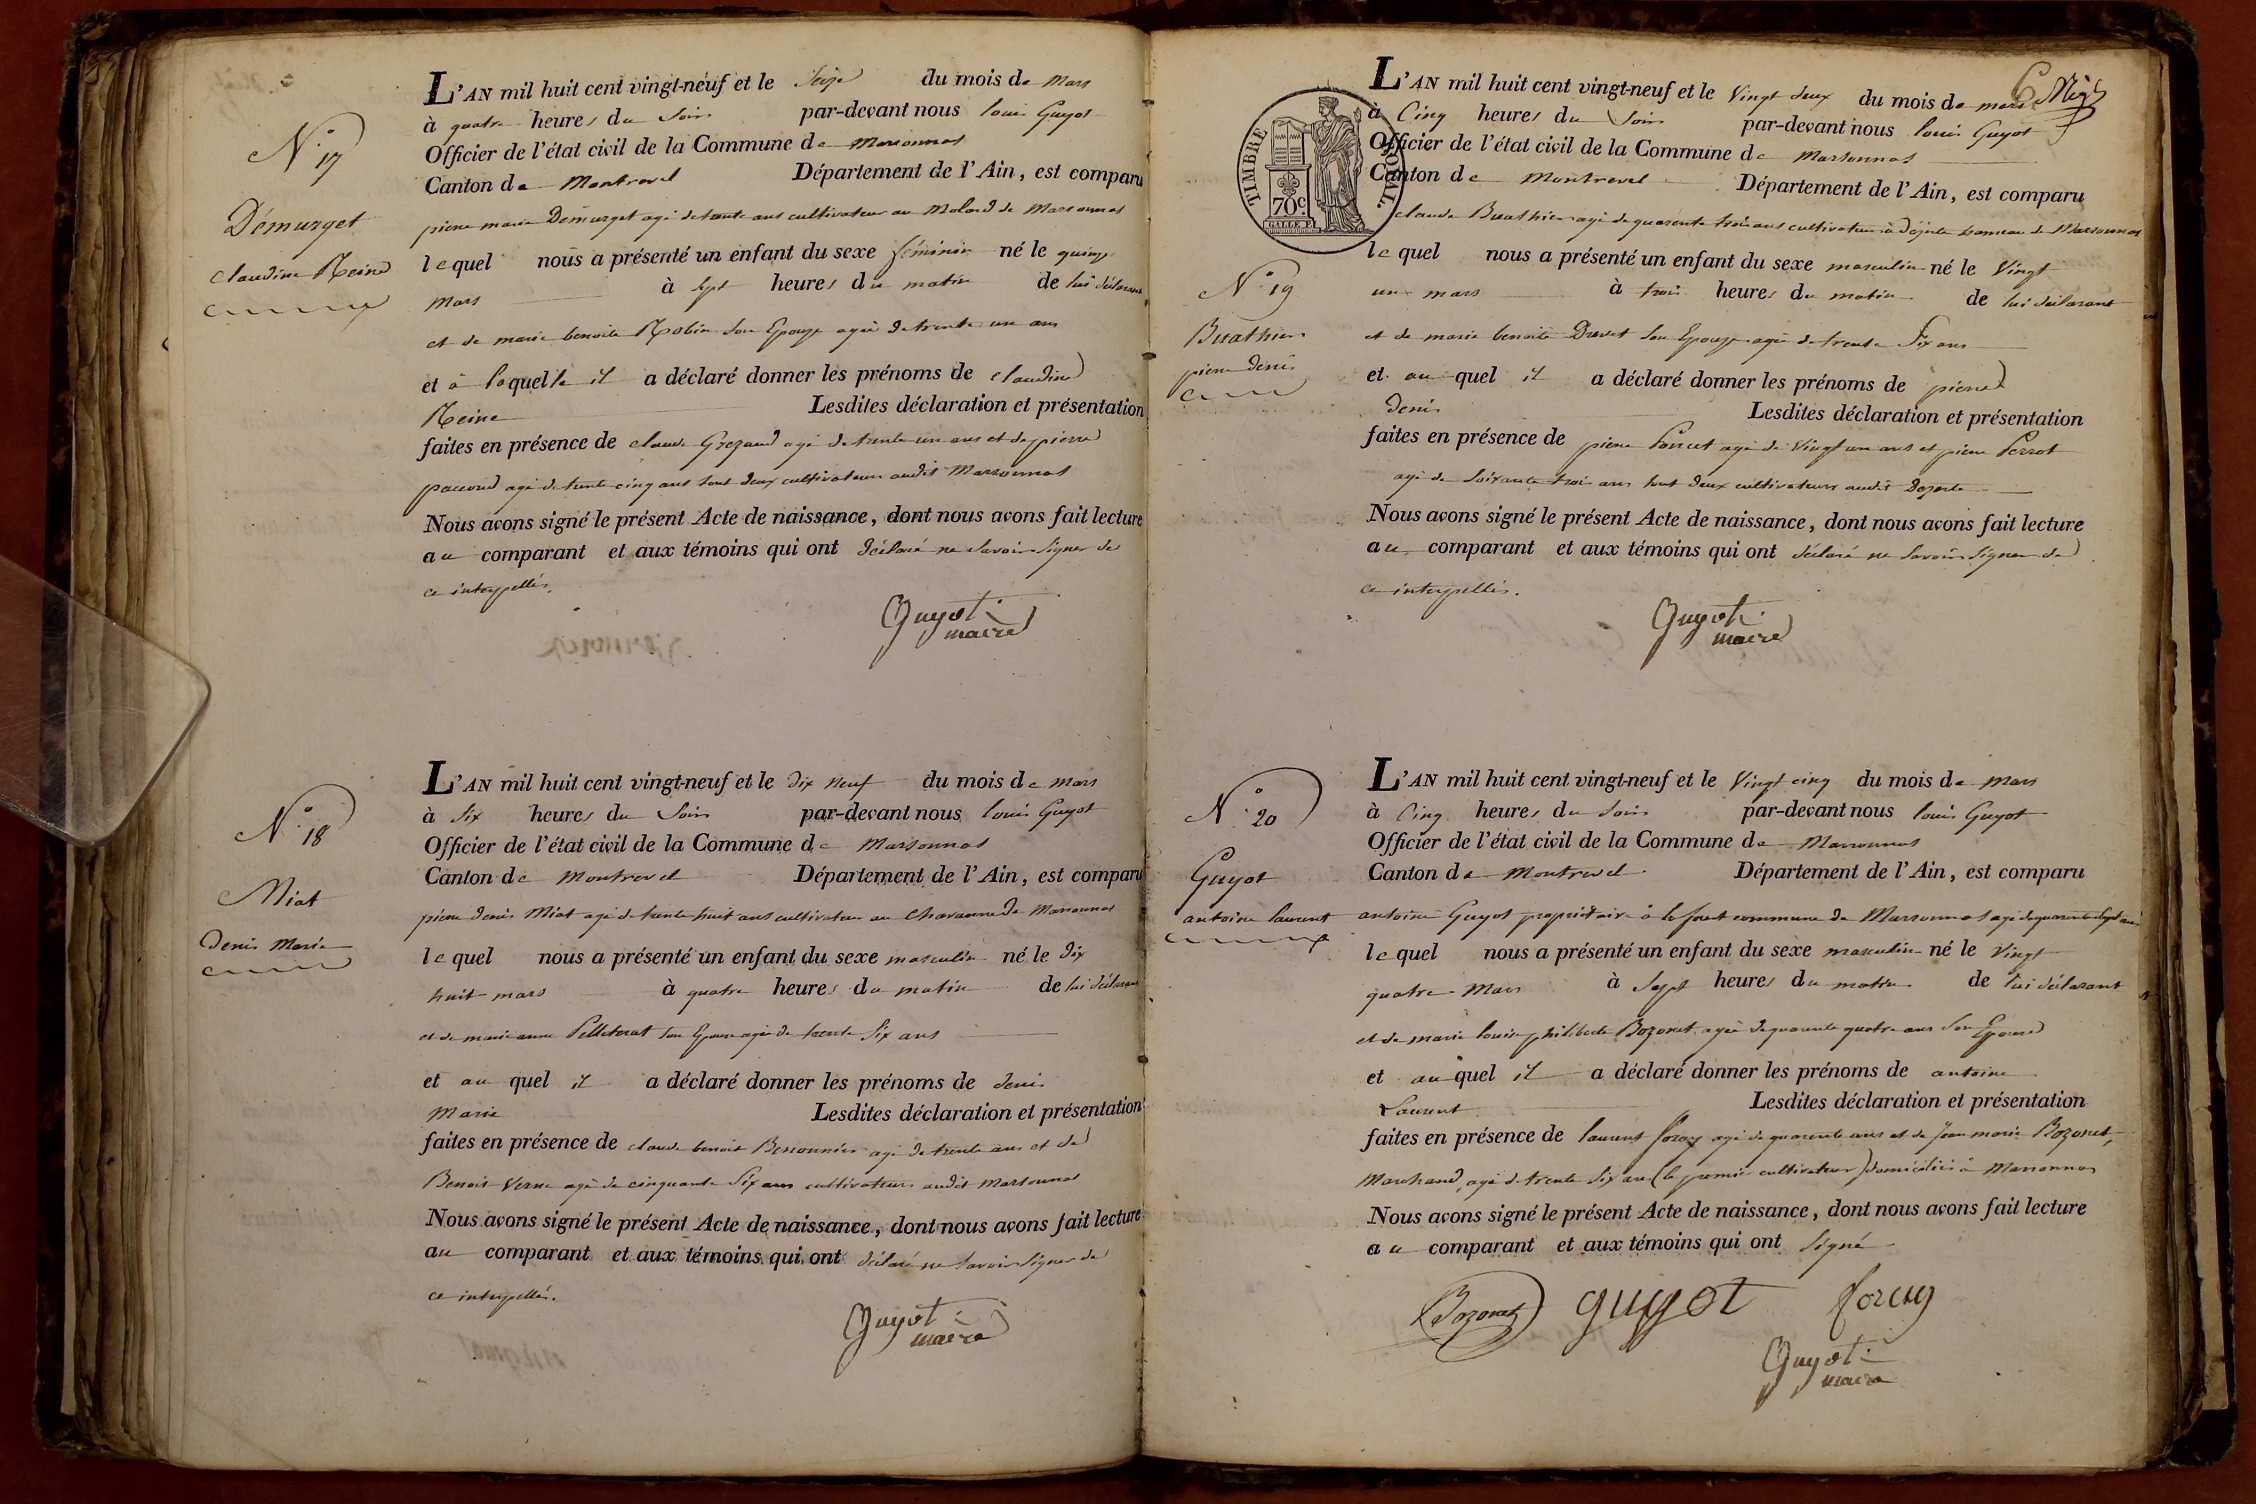 N° 17
Démurget
claudine Reine
L'AN mil huit cent vingt-neuf et le Seize du mois de mars
à quatre heures du Soir par-devant nous louis Guyot
Officier de l'état civil de la Commune de marsonnas
Canton de Montrevel Département de l'Ain, est comparu
pierre marie Démurget agé de trente ans cultivateur au Molard de Marsonnas
lequel nous a présenté un enfant du sexe féminin né le quinze
mars à sept heures du matin de lui déclarant
et de marie benoite Robin Son Epouse agée de trente un ans
et à laquelle il a déclaré donner les prénoms de claudine
Reine Lesdites déclaration et présentation
faites en présence de claude Grezaud agé de trente un ans et de pierre
paccoud agé de trente cinq ans tout deux cultivateurs audit Marsonnas
Nous avons signé le présent Acte de naissance, dont nous avons fait lecture
au comparant et aux témoins qui ont déclaré ne Savoir Signer de
ce interpellés.
Guyot
maire
N° 18
Miat
Denis Marie
L'AN mil huit cent vingt-neuf et le dix neuf du mois de mars
à Six heures du Soir par-devant nous louis Guyot
Officier de l'état civil de la Commune de Marsonnas
Canton de Montrevel Département de l'Ain, est comparu
pierre denis Miat agé de trente huit ans cultivateur au Chavanne de Marsonnas
lequel nous a présenté un enfant du sexe masculin né le dix
huit mars à quatre heures du matin de lui déclarant
et de marie anne Pelletrat Son Epouse agée de trente Six ans
et au quel il a déclaré donner les prénoms de denis
Marie Lesdites déclaration et présentation
faites en présence de claude benoit agé de trente ans et de
Benoit Verne agé de cinquante Six ans cultivateurs audit Marsonnas
Nous avons signé le présent Acte de naissance, dont nous avons fait lecture
au comparant et aux témoins qui ont déclaré ne Savoir Signer de
ce interpellés.
Guyot
maire
TIMBRE ROYAL
70c.
N° 19
Buathier
pierre denis
L'AN mil huit cent vingt-neuf et le Vingt deux du mois de mars
à Cinq heures du Soir par-devant nous louis Guyot
Officier de l'état civil de la Commune de Marsonnas
Canton de Montrevel Département de l'Ain, est comparu
claude Buathier agé de quarante trois ans cultivateur à hameau de Marsonnas
lequel nous a présenté un enfant du sexe masculin né le Vingt
un mars à trois heures du matin de lui déclarant
et de marie benoite Drevet Son Epouse agée de trente Six ans
et au quel il a déclaré donner les prénoms de pierre
denis Lesdites déclaration et présentation
faites en présence de pierre Poncet agé de Vingt un ans et pierre Perrot
agé de Soixante trois ans tout deux cultivateurs audit
Nous avons signé le présent Acte de naissance, dont nous avons fait lecture
au comparant et aux témoins qui ont déclaré ne Savoir Signer de
ce interpellés.
Guyot
maire
N° 20
Guyot
antoine laurent
L'AN mil huit cent vingt-neuf et le Vingt cinq du mois de mars
à Cinq heures du Soir par-devant nous louis Guyot
Officier de l'état civil de la Commune de Marsonnas
Canton de Montrevel Département de l'Ain, est comparu
antoine Guyot propriétaire à la foret commune de Marsonnas agé de quarante Sept ans
lequel nous a présenté un enfant du sexe masculin né le Vingt
quatre Mars à Sept heures du matin de lui déclarant
et de marie louise philiberte Bozonet agée de quarante quatre ans Son Epouse
et au quel il a déclaré donner les prénoms de antoine
Laurent Lesdites déclaration et présentation
faites en présence de laurent foray agé de quarante ans et de Jean marie Bozonet,
Marchand, agé de trente Six ans (le premier cultivateur) domiciliés à Marsonnas
Nous avons signé le présent Acte de naissance, dont nous avons fait lecture
au comparant et aux témoins qui ont Signé
Bozonet guyot foray
Guyot
maire